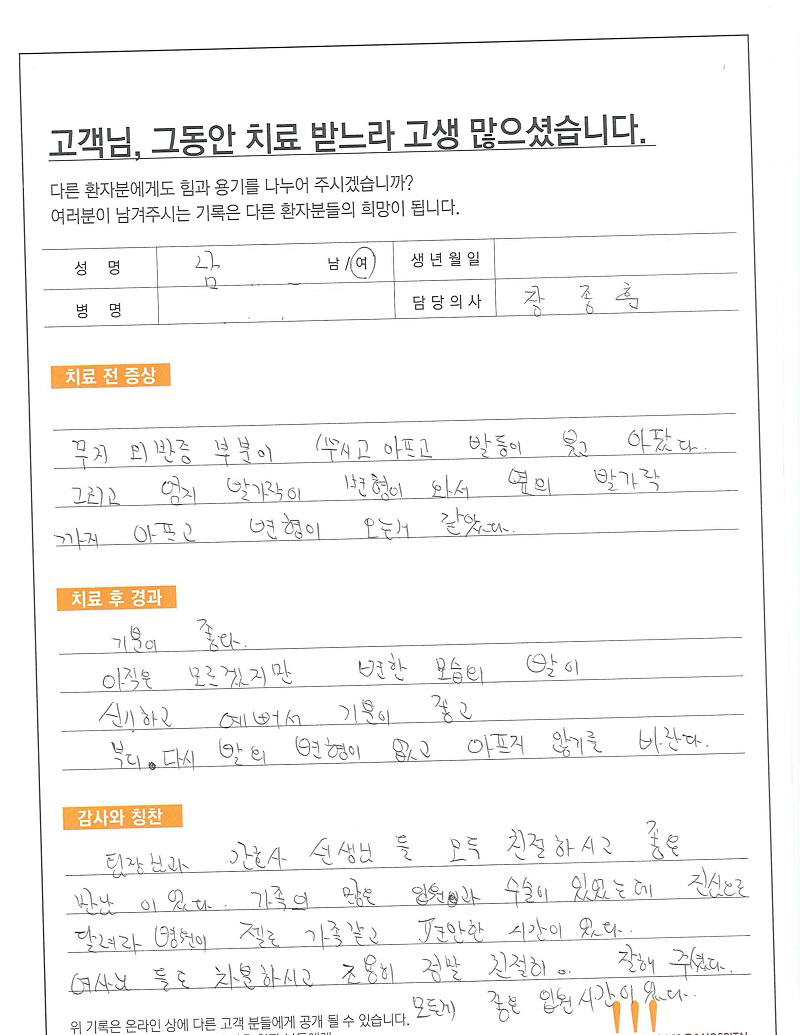 고객님, 그동안 치료 받느라 고생 많으셨습니다.
다른 환자분에게도 힘과 용기를 나누어 주시겠습니까?
여러분이 남겨주시는 기록은 다른 환자분들의 희망이 됩니다.
성 명 남 / 여 생년월일
병 명 담당의사 장 종 훈
치료 전 증상
무지 외반증 부분이 쑤시고 아프고 발등이 붓고 아팠다.
그리고 엄지 발가락이 변형이 와서 옆의 발가락
까지 아프고 변형이 오는거 같았다.
치료 후 경과
기분이 좋다.
아직은 모르겠지만 변한 모습의 발이
신기하고 예뻐서 기분이 좋고
부디 다시 발의 변형이 없고 아프지 않기를 바란다.
감사와 칭찬
팀장님과 간호사 선생님 들 모두 친절하시고 좋은
만남 이 었다. 가족의 많은 입원과 수술이 있었는데 진심으로
달려라 병원이 젤로 가족같고 편안한 시간이 었다.
여사님 들도 차분하시고 조용히 정말 친절히 잘해 주셨다.
모든게 좋은 입원시간이었다..
위 기록은 온라인 상에 다른 고객 분들에게 공개 될 수 있습니다.